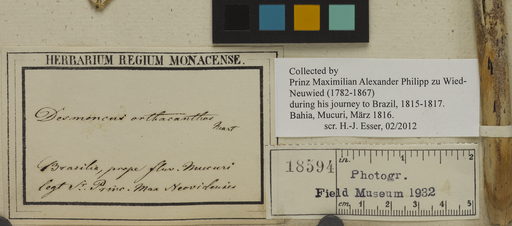 HERBARIUM REGIUM MONACENSE.
Desmoncus orthacanthos
Mart
Brasilia, prope fluv. Mucuri
legt S. Princ. Max Neovidensis
Collected by
Prinz Maximilian Alexander Philipp zu Wied-
Neuwied (1782-1867)
during his journey to Brazil, 1815-1817.
Bahia, Mucuri, März 1816.
scr. H.-J. Esser, 02/2012
18594
in. 1
Photogr.
Field Museum 1932
cm 1 2 3 4 5